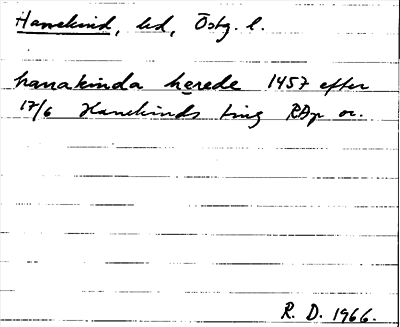 Hanekind, hd, Östg. l.
hanakinda herede 1457 efter
17/6 Hanekinds ting RAp or.
R. D. 1966.